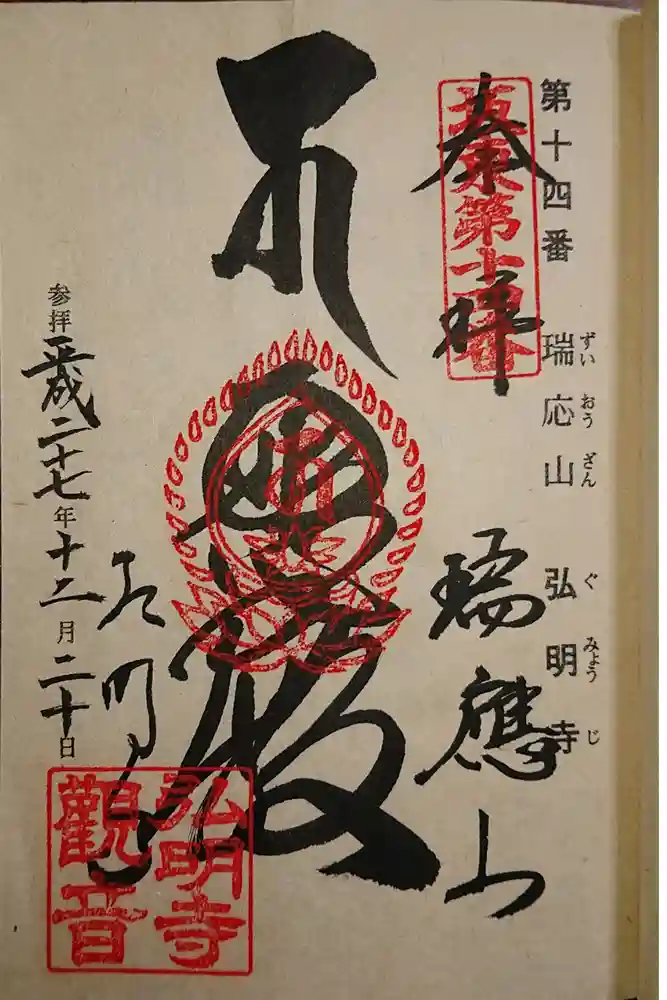 第十四番 瑞応山 弘明寺
ずいおうざん ぐみょうじ
奉拝
坂東第十四番
瑞應山
弘明寺
参拝 平成二十七年十二月二十日
弘明寺
觀音